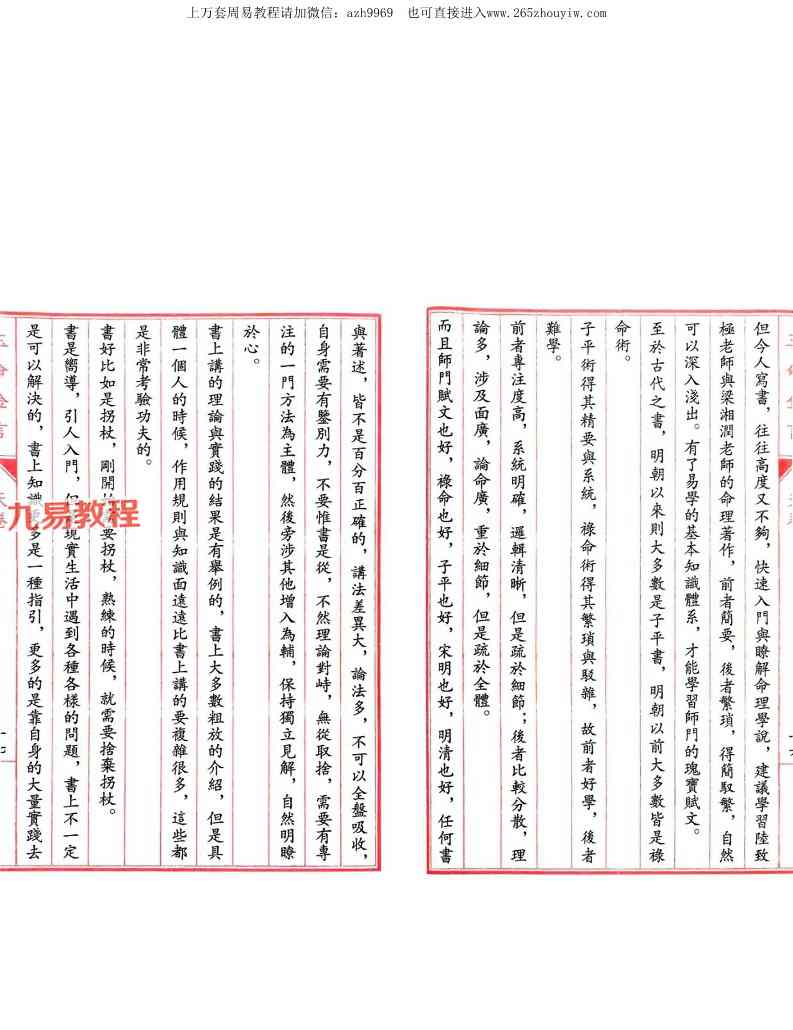 上万套周易教程请加微信：azh9969 也可直接进入www.265zhouyiw.com
但今人寫書，往往高度又不夠，快速入門與瞭解命理學說，建議學習陸致
極老師與梁湘潤老師的命理著作，前者簡要，後者繁瑣，得簡馭繁，自然
可以深入淺出。有了易學的基本知識體系，才能學習師門的瑰寶賦文。
至於古代之書，明朝以來則大多數是子平書，明朝以前大多數皆是祿
命術。
子平術得其精要與系統，祿命術得其繁瑣與駁雜，故前者好學，後者
難學。
前者專注度高，系統明確，邏輯清晰，但是疏於細節；後者比較分散，理
論多，涉及面廣，論命廣，重於細節，但是疏於全體。
而且師門賦文也好，祿命也好，子平也好，宋明也好，明清也好，任何書
與著述，皆不是百分百正確的，講法差異大，論法多，不可以全盤吸收，
自身需要有鑒別力，不要惟書是從，不然理論對峙，無從取捨，需要有專
注的一門方法為主體，然後旁涉其他增入為輔，保持獨立見解，自然明瞭
於心。
書上講的理論與實踐的結果是有舉例的，書上大多數粗放的介紹，但是具
體一個人的時候，作用規則與知識面遠遠比書上講的要複雜很多，這些都
是非常考驗功夫的。
書好比如是拐杖，剛開需要拐杖，熟練的時候，就需要捨棄拐杖。
書是嚮導，引人入門，但現實生活中遇到各種各樣的問題，書上不一定
是可以解決的，書上知識更多是一種指引，更多的是靠自身的大量實踐去
九易教程
十七